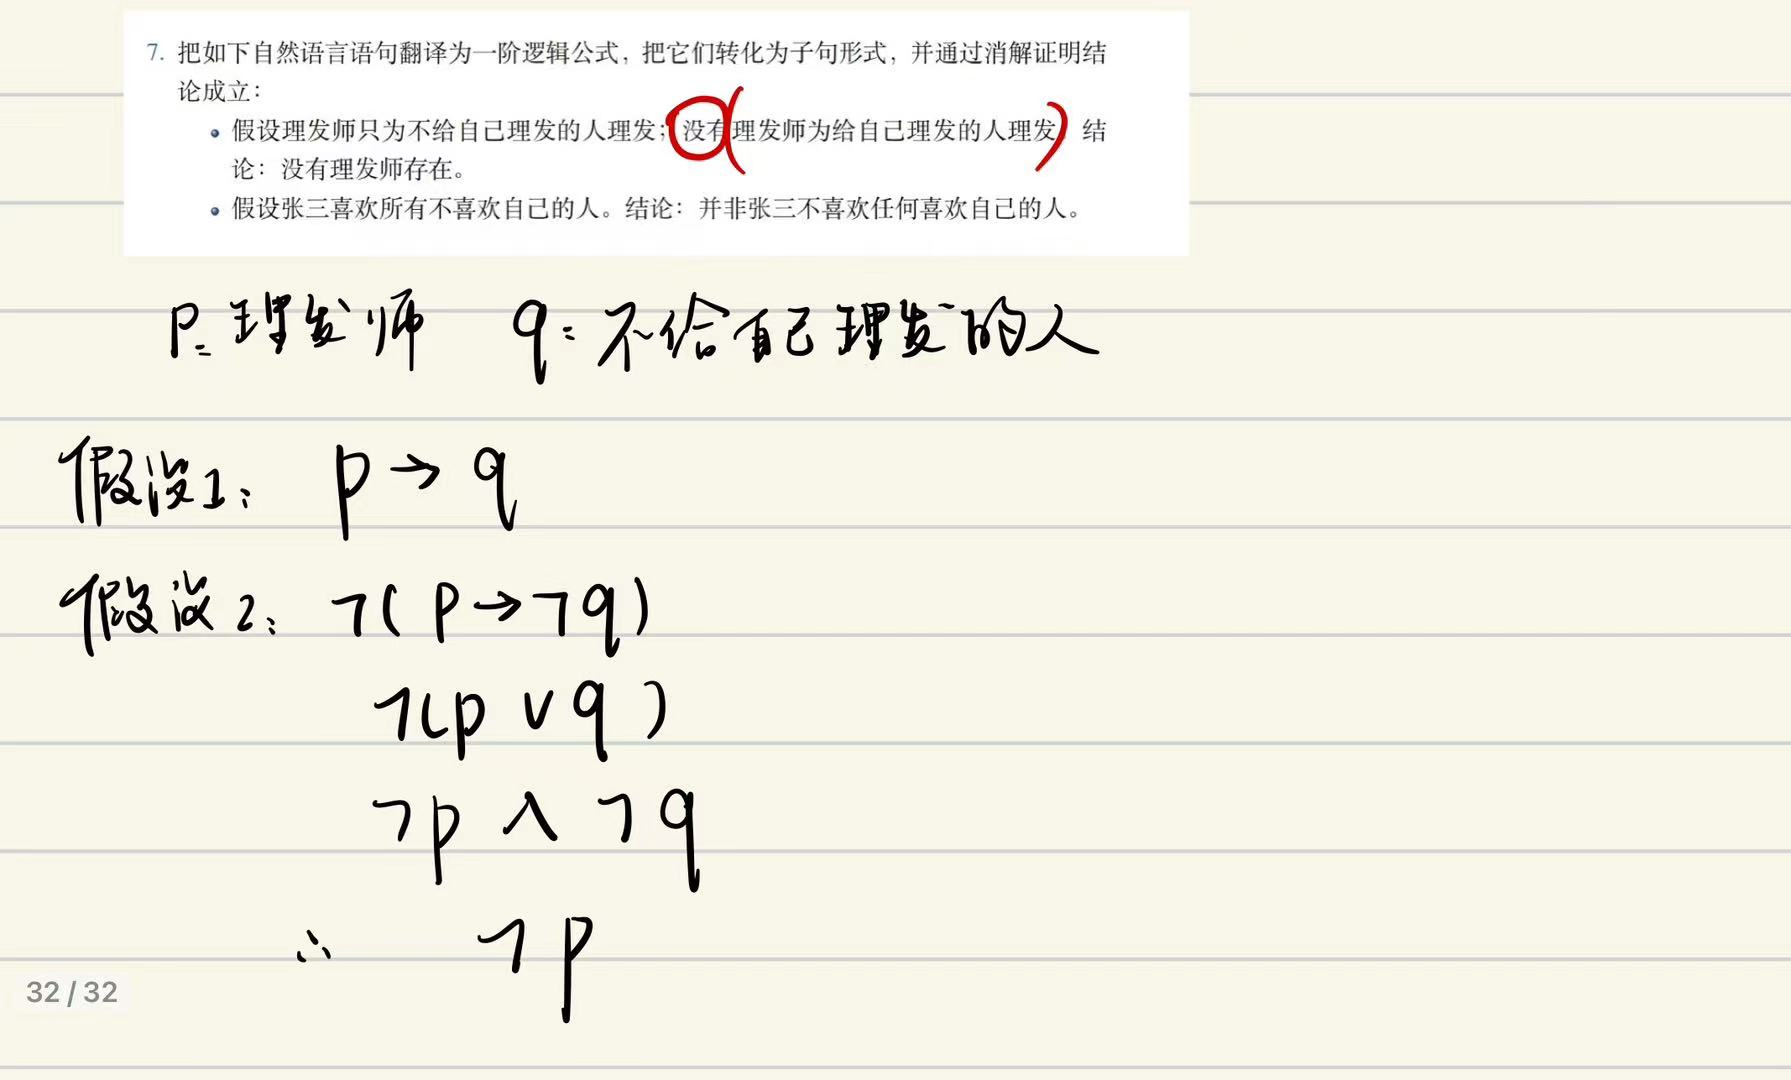 7. 把如下自然语言语句翻译为一阶逻辑公式，把它们转化为子句形式，并通过消解证明结
论成立：
• 假设理发师只为不给自己理发的人理发；没有理发师为给自己理发的人理发。结
论：没有理发师存在。
• 假设张三喜欢所有不喜欢自己的人。结论：并非张三不喜欢任何喜欢自己的人。
P: 理发师 q: 不给自己理发的人
假设1: p → q
假设2: ¬( p → ¬q)
¬(p ∨ q )
¬p ∧ ¬q
∴ ¬p
32 / 32